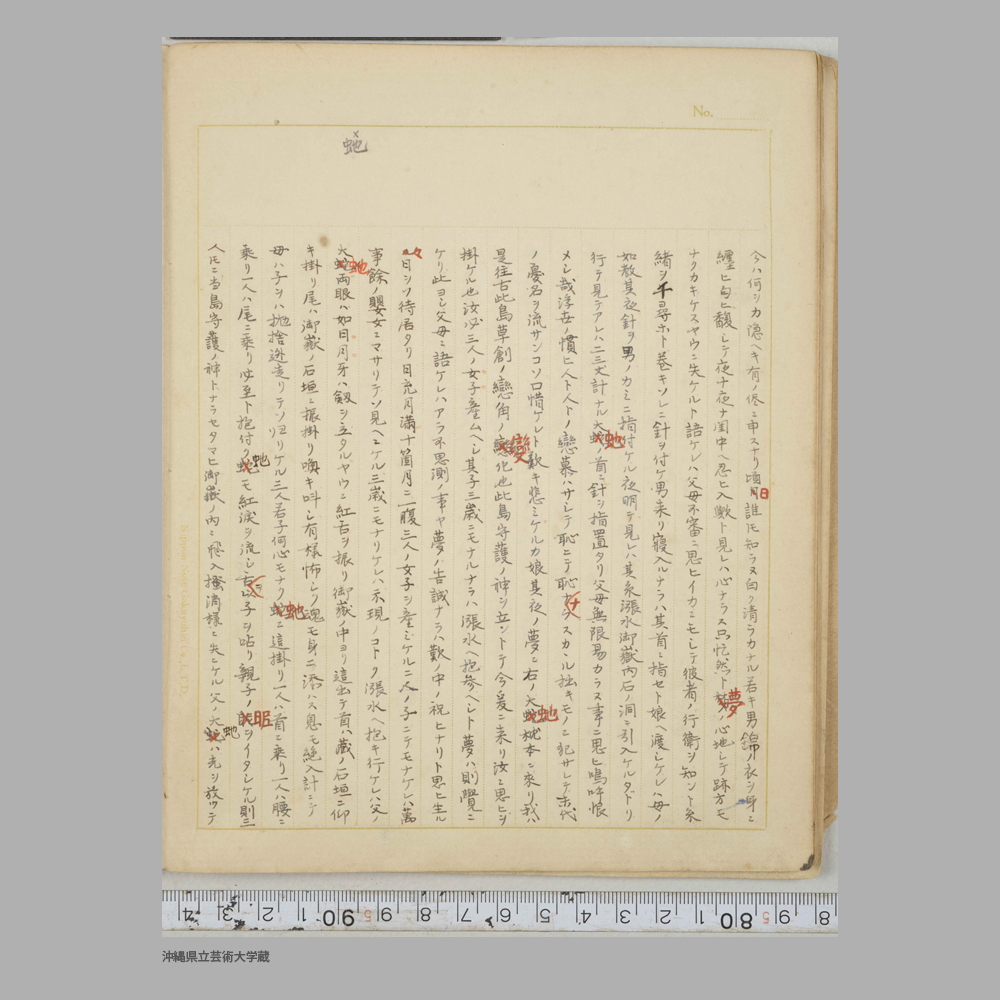 No.
虵
今ハ何シカ隠ヘキ有ノ侭ニ申スナリ頃日誰トモ知ラヌ白ク清ラカナル若キ男錦ノ衣ヲ身ニ
纏ヒ匂ヒ馥レテ夜ナ夜ナ閨中ヘ忍ヒ入歟ト見レハ心ナラス只忙然ト夢ノ心地シテ跡方モ
ナクカキケスヤウニ失ケルト語ケレハ父母不審ニ思ヒイカニモシテ彼者ノ行衛ヲ知ント糸
緒ヲ千尋ホト巻キソレニ針ヲ付ケ男来リ寝入ルナラハ其首ニ指セト娘ヘ渡シケレハ母ノ
如教其夜針ヲ男ノカミニ指付ケル夜明テ見レハ其糸漲水御嶽内石ノ洞ニ引入ケルタドリ
行テ見テアレハ二三丈計ナル大虵ノ首ニ針ヲ指置タリ父母無限易カラヌ事ニ思ヒ嗚呼恨
メシ哉浮世ノ慣ヒ人トノ戀慕ハサレテ恥ニテ恥ナラスカヽル拙キモノニ犯サレテ末代
ノ憂名ヲ流サンコソ口惜ケレト歎キ悲ミケルカ娘其夜ノ夢ニ右ノ大虵枕本ニ來リ我ハ
是往古此島草創ノ戀角ノ變化也此島守護ノ神ヲ立ントテ今爰ニ来リ汝ニ思ヒヲ
掛ケル也汝必三人ノ女子産ムヘシ其子三歳ニモナルナラハ漲水ヘ抱参ヘシト夢ハ則覺ニ
ケリ此ヨシ父母ニ語ケレハアラ不思測ノ事ヤ夢ノ告誠ナラハ歎ノ中ノ祝ヒナリト思ヒ生ル
々日ヲソ待居タリ日充月満十箇月ニ一腹三人ノ女子ヲ産ミケルニ人ノ子ニテモナケレハ萬
事餘ノ嬰女ニマサリテソ見ヘニケル三歳ニモナリケレハ示現ノコトク漲水ヘ抱キ行ケレハ父ノ
大虵両眼ハ如日月牙ハ劔ヲ立タルヤウニ紅舌ヲ振リ御嶽ノ中ヨリ這出テ首ハ蔵ノ石垣ニ仰
キ掛リ尾ハ御嶽ノ石垣ニ振掛リ喚キ叫シ有様怖シク魂モ身ニ添ハス息モ絶入計ニシ
母ハ子ヲハ抛捨逃走リテソヨリケル三人若子何心モナク虵ニ這掛リ一人ハ首ニ乗リ一人ハ腰ニ
乗リ一人ハ尾ニ乗リ必至ト抱付ク虵モ紅涙ヲ流シ舌ヲ以子ヲ咶リ親子ノ眤ヲイタシケル則三
人トモニ当島守護ノ神トナラセタマヒ御嶽ノ内ニ飛入掻消様ニ失ニケル父ノ大虵ハ光ヲ放ツテ
沖縄県立芸術大学蔵